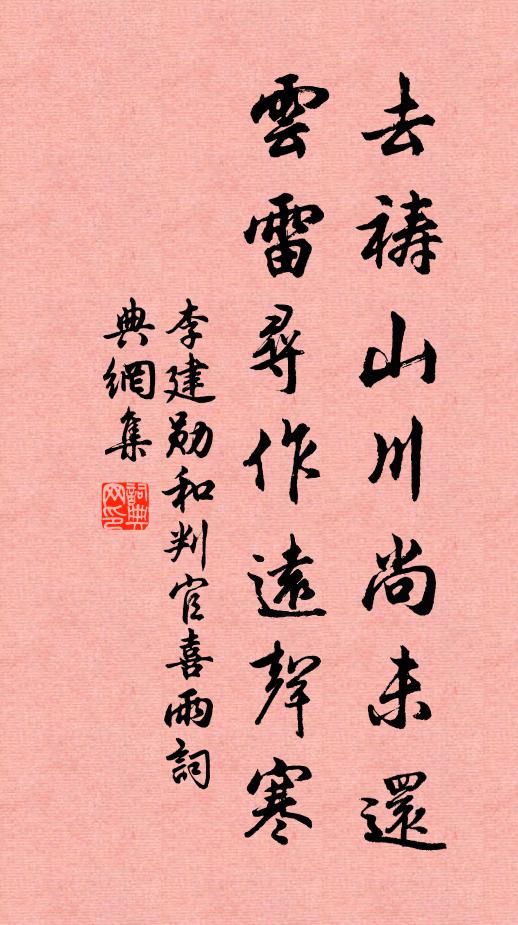 去禱山川尚未還
雲雷尋作遠聲寒
李建勛和判官喜雨詞
典網集
詞典網印